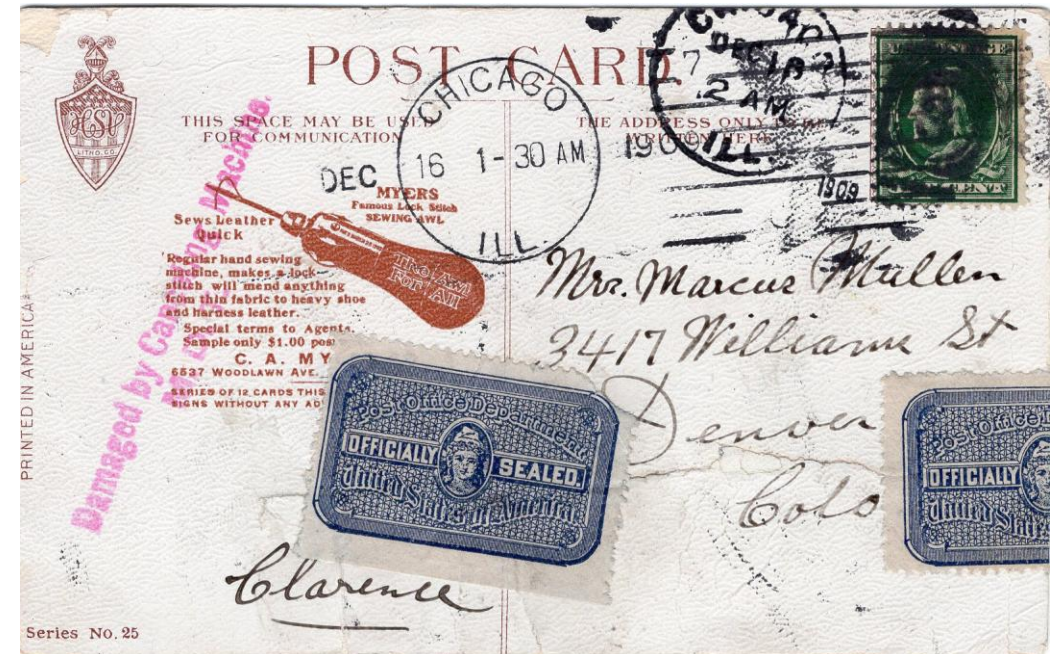 POST CARD.
THIS SPACE MAY BE USED
FOR COMMUNICATION
THE ADDRESS ONLY
WRITTEN HERE
HSV
LITHO. CO.
CHICAGO
DEC 16 1-30 AM 190
ILL.
DEC 18
2 AM
ILL.
1909
Damaged by Canceling Machine.
MYERS
Famous Lock Stitch
SEWING AWL
Sews Leather
Quick
The Awl
For All
Regular hand sewing
machine, makes a lock
stitch will mend anything
from thin fabric to heavy shoe
and harness leather.
Special terms to Agents.
Sample only $1.00
C. A. MY
6537 WOODLAWN AVE.
SERIES OF 12 CARDS THIS
SIGNS WITHOUT ANY AD
PRINTED IN AMERICA
Mrs. Marcus Mullen
3417 Williams St
Denver
Colo
Post Office Department
OFFICIALLY SEALED.
United States of America
Post Office
OFFICIALLY
United States
Clarence
Series No. 25